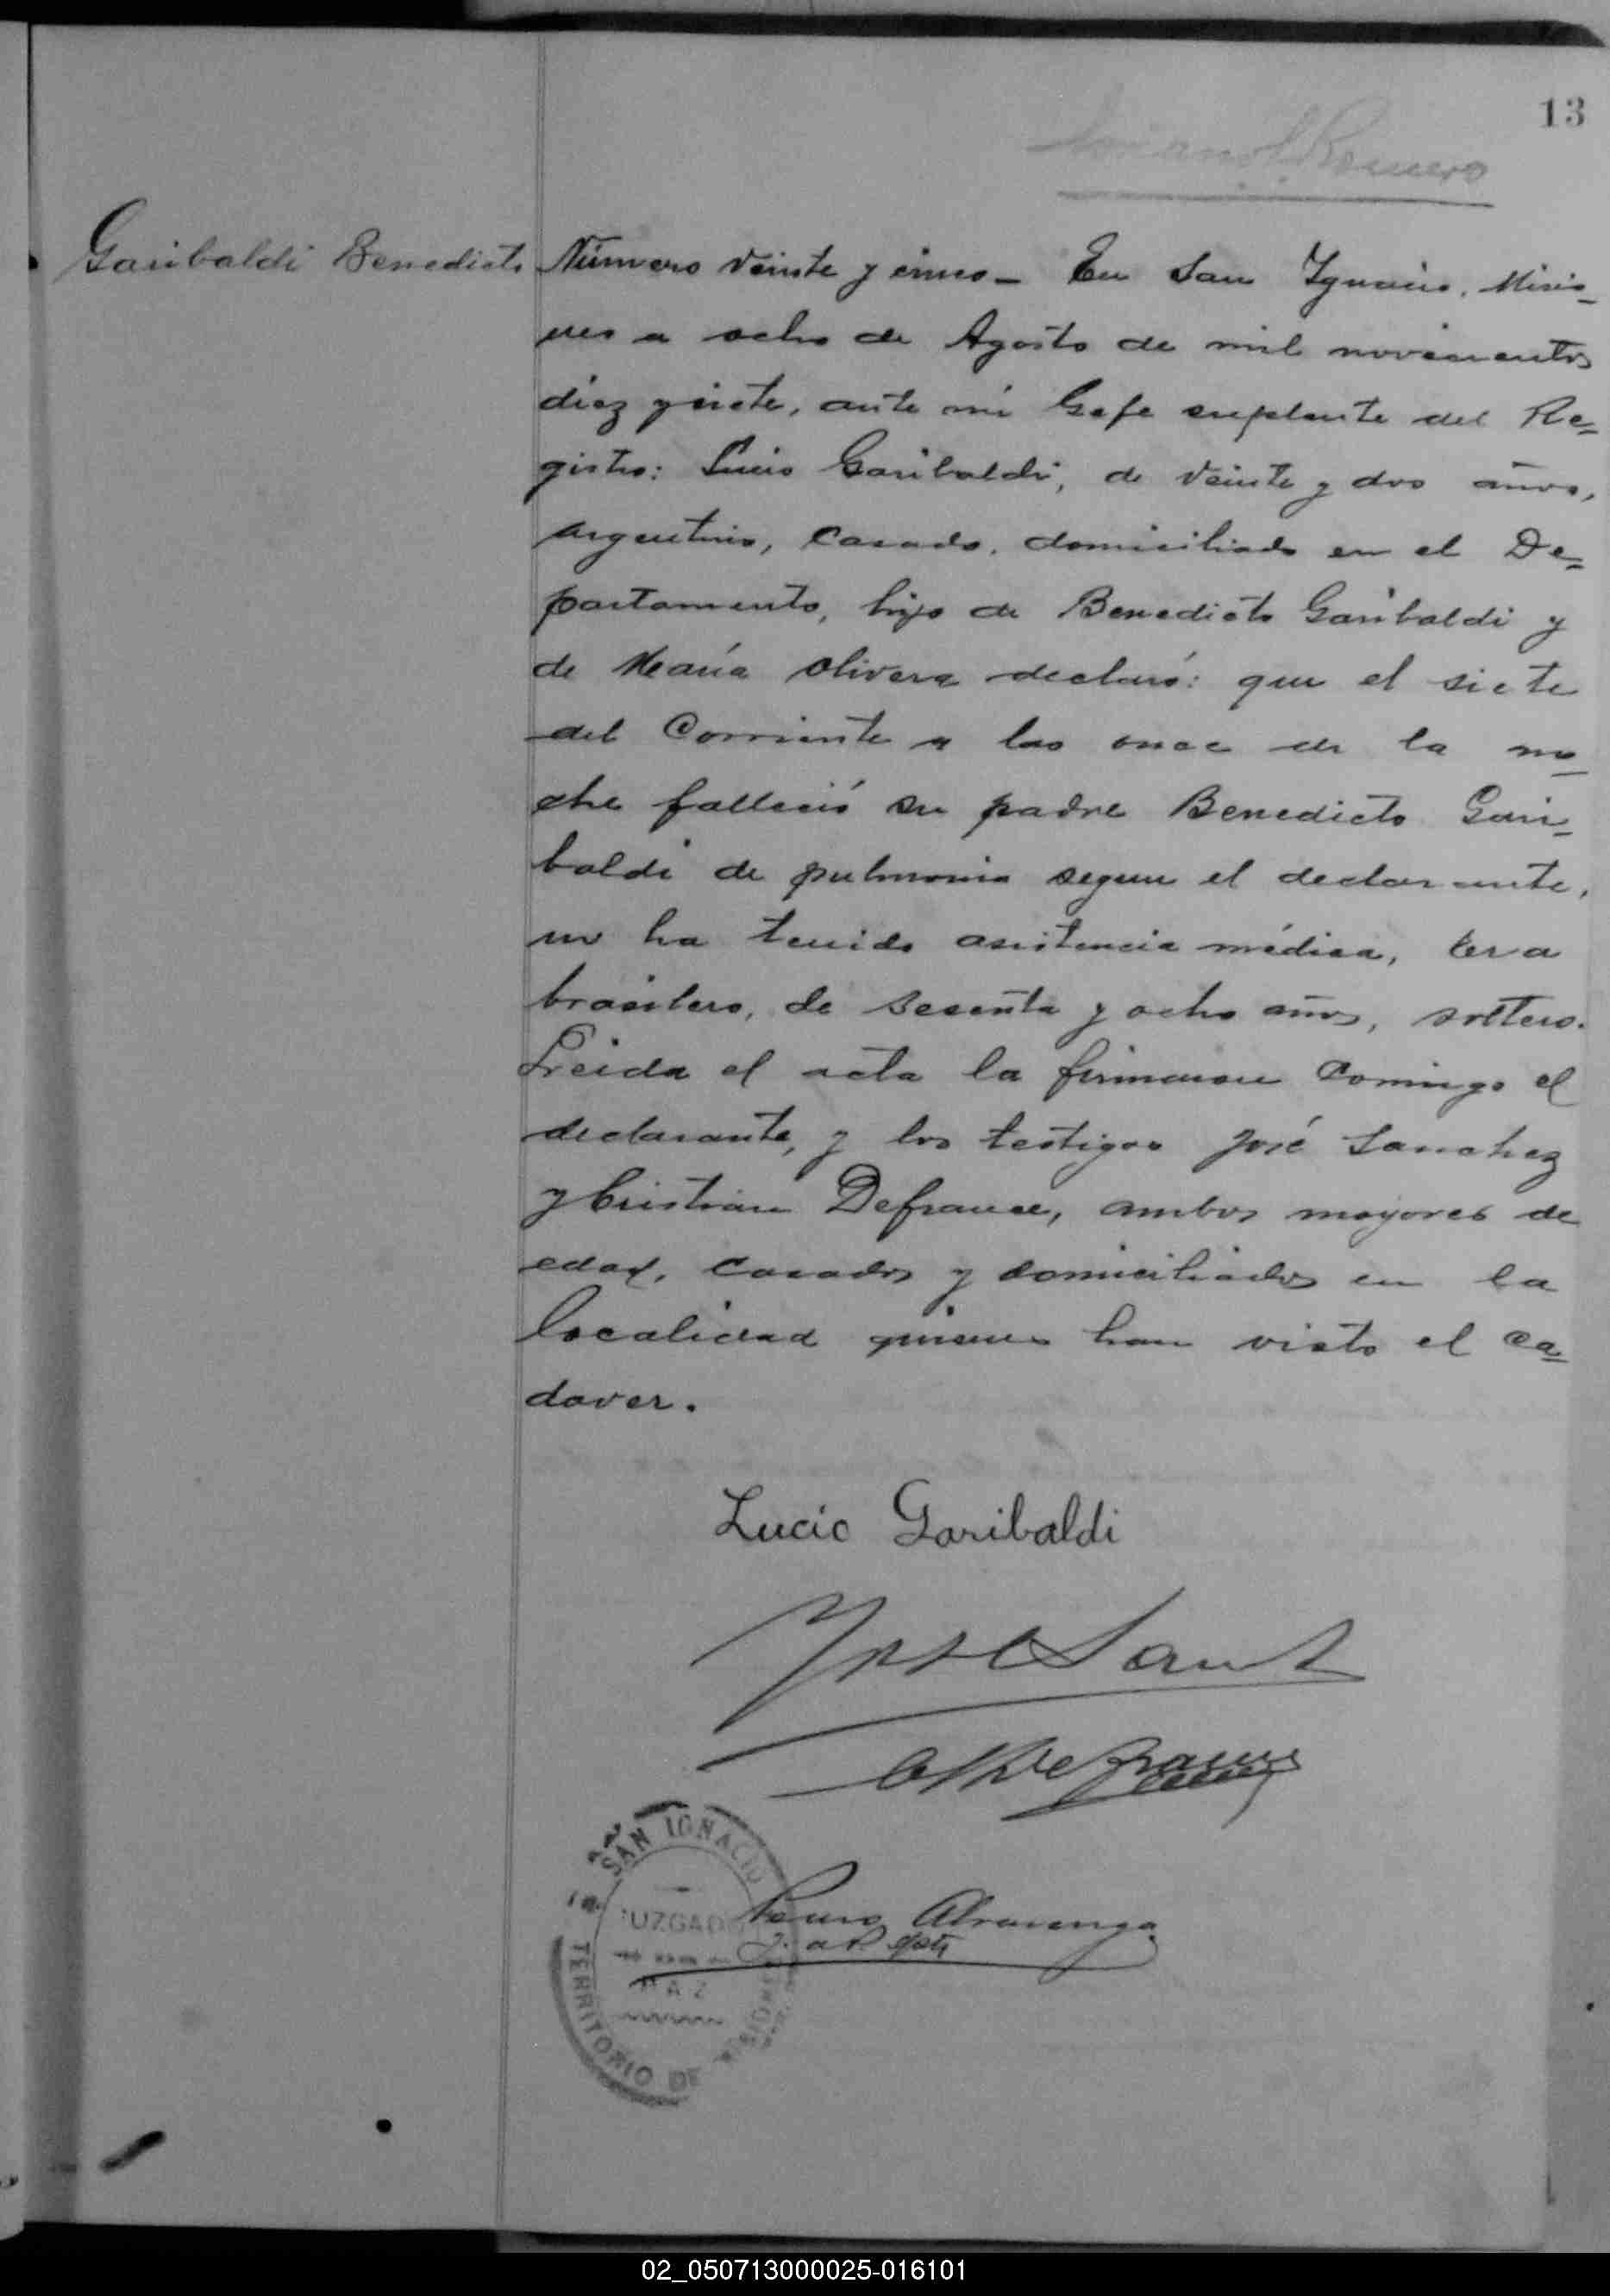 13
Romero
Garibaldi Benedicto
Número veinte y cinco - En San Ignacio, Misio-
nes a ocho de Agosto de mil novecientos
diez y siete, ante mi Gefe suplente del Re-
gistro: Lucio Garibaldi, de veinte y dos años,
argentino, casado, domiciliado en el De-
partamento, hijo de Benedicto Garibaldi y
de María Olivera declaró: que el siete
del Corriente a las once de la no-
che falleció su padre Benedicto Gari-
baldi de pulmonia segun el declarante,
no ha tenido asistencia médica, era
brasilero, de sesenta y ocho años, soltero.
Leida el acta la firmaron Conmigo el
declarante, y los testigos José Sanchez
y Cristian Defrance, ambos mayores de
edad, casados y domiciliados en la
localidad quienes han visto el ca-
daver.
Lucio Garibaldi
José Sanz
Defrance
SAN IGNACIO
JUZGADO
PAZ
TERRITORIO DE MISIONES
Alvarenga
J. de P. splte
02_050713000025-016101